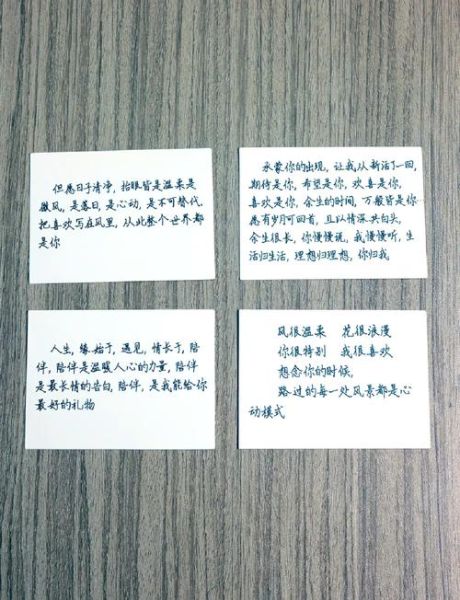 但愿日子清净，抬眼皆是温柔是
微风，是落日，是心动，是不可替代，
把喜欢写在风里，从此整个世界都
是你
承蒙你的出现，让我从新活了一回，
期待是你，希望是你，欢喜是你，
喜欢是你，余生的时间，万般皆是你
愿有岁月可回首，且以情深共白头，
余生很长，你慢慢说，我慢慢听，生
活归生活，理想归理想，你归我
人生，缘始于，遇见，情长于，陪
伴，陪伴是温暖人心的力量，陪伴
是最长情的告白，陪伴，是我能给你
最好的礼物
风很温柔 花很浪漫
你很特别 我很喜欢
想念你的时候，
路过的每一处风景都是心
动模式